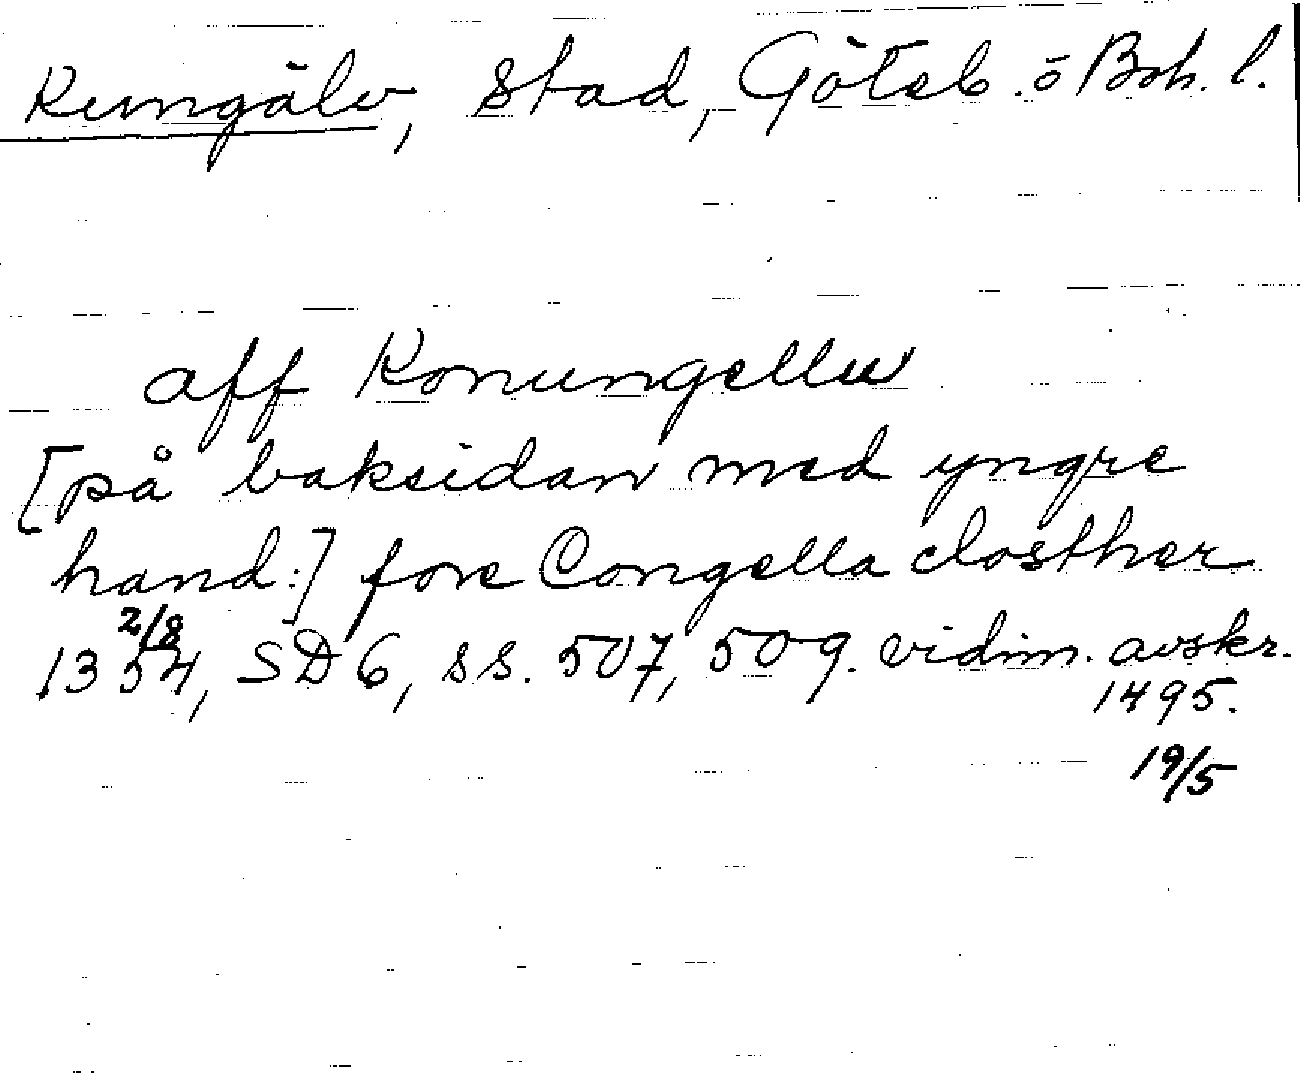 Kungälv, Stad, Göteb. o Boh. l.
aff Konungelluu
[på baksidan med yngre
hand:] fore Congella closther
2/8
1354, SD 6, ss. 507, 509. vidim. avskr.
1495.
19/5